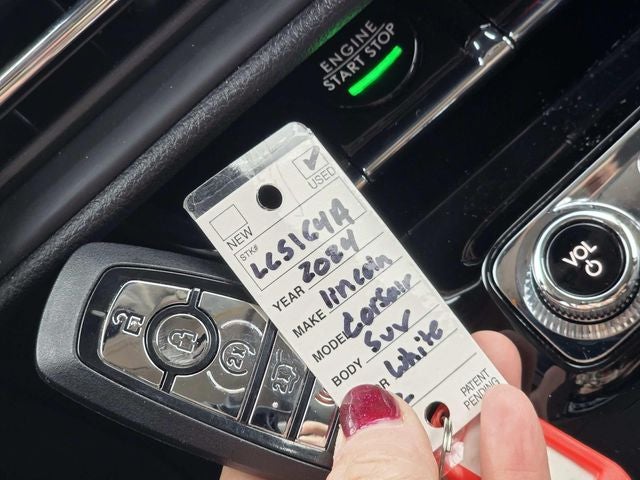 ENGINE
START STOP
NEW ✓ USED
STK# LC5164A
YEAR 2024
MAKE lincoln
MODE Corsair
BODY SUV
R White
PATENT
PENDING
VOL
2X